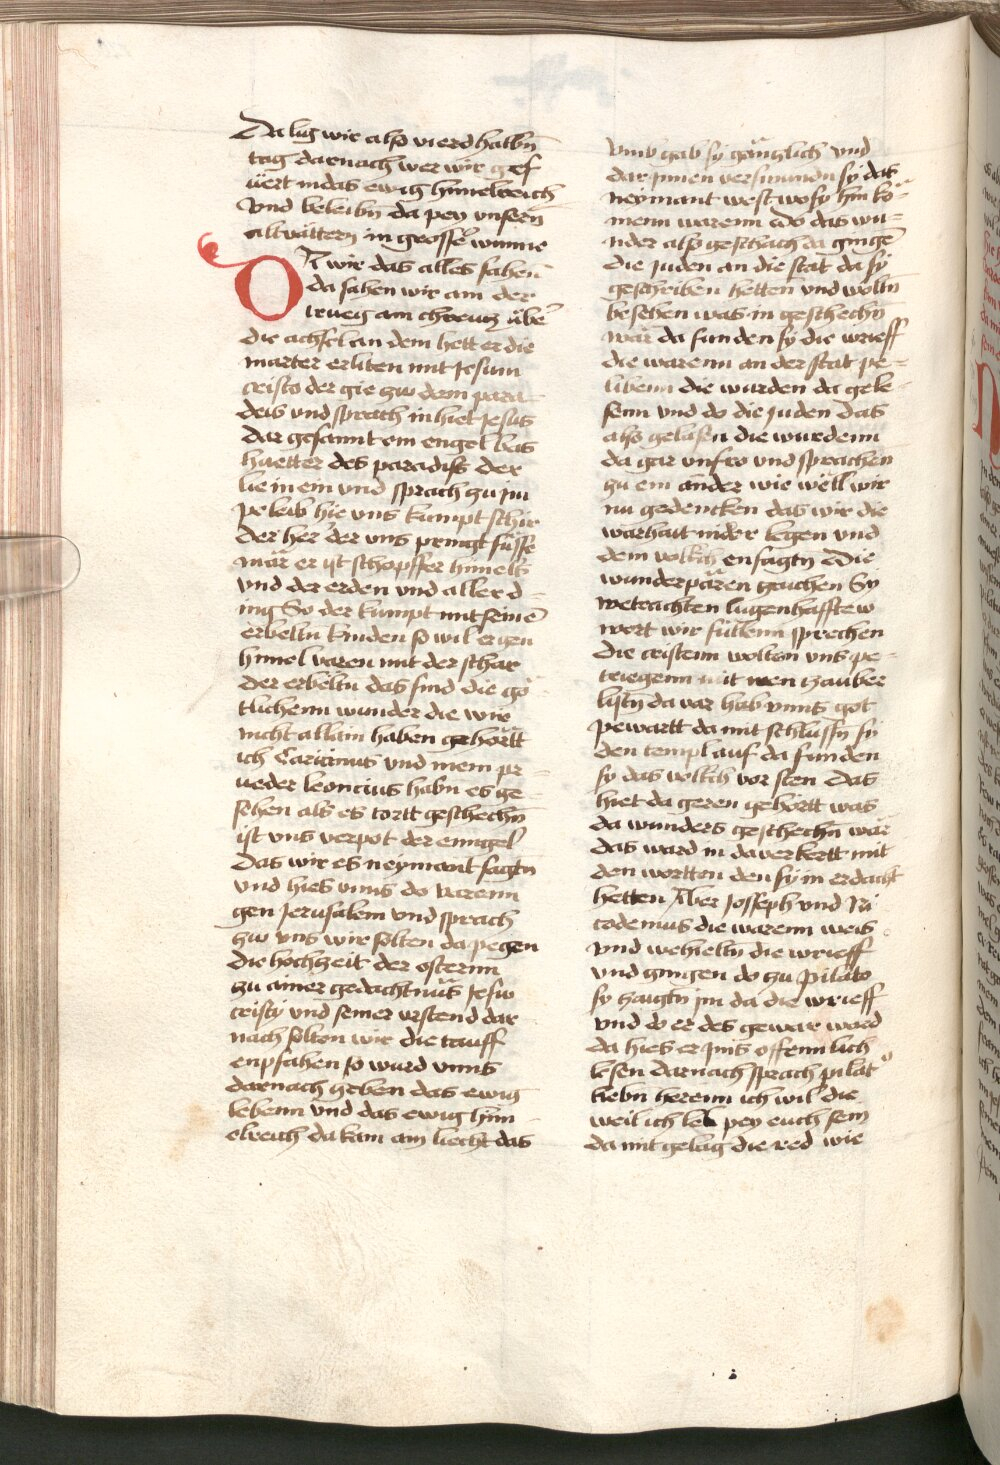 Da lag wir also vierdhalbn̄
tag darnach wer wir gef
üert in das ewig himelreich
Vnd beleibn̄ da pey vnsern̄
altvättern in grosser wunne
Oñ wir das alles sahen̄
da sahen wir ain der
trueg ain chreucz übe᷑
die achsel an dem hett er die
marter erliten mit Jesum
cristo der gie zw dem para-
deis vnd sprach in hiet Jesus
dar gesannt ein engel bas
huetter des paradiß der
lie in ein vnd sprach zu im
peleib hie vns kumpt schir
der her der vns pringt süsse
mär er ist schopffer himels
vnd der erden vnd aller d-
ing So der kumpt mit seinē
erbeltn kinden so wil er gen
himel varen mit der schar
der erbeltn das sind die gö-
tlichenn wunder die wir
nicht allain haben gehörtt
ich Caricinus vnd mein pr-
ueder leoncius habn es ge-
sehen als es tortt geschechn̄
ist vns verpot der enngel
das wir es neymant sagtn̄
vnd hies vnns do varenn
gen Jerusalem vnd sprach
zw vns wir solten da pegen
die hochzeit der osternn
zu ainer gedachtnüs Jesu
cristy vnd seiner vrstend dar
nach solten wir die tauff
enpfahen so wurd vnns
darnach geben das ewig
lebenn vnd das ewig him-
elreich da kam ain liecht das
vmb gab sy gänglich vnd
dar Innen versunndn sy das
neymant west wo sy hin ko-
menn warenn Do das wu-
nder also geschach da gingē
die Juden an die stat da sy
geschriben hetten vnd woltn̄
besehen was in geschechn̄
wär da funden sy die wrieff
die warenn an der stat pe-
libenn die wurden da gele-
senn vnd do die Juden das
also gelasen die wurdenn
da gar vnfro vnd sprachen
zu ein ander wie well wir
nu gedencken das wir die
warhait nider legen vnd
dem volkch ensagtn Die
wunderpären zaichen Sy
petrachten lugenhafftew
wort wir süllenn sprechen
die cristenn wolten vns pe-
triegenn mit iren zauber
listn da var hab vnns got
pewartt da mit schlussn̄ sy
den templ auf da funden
sy das volkch vor sten das
hiet da geren gehörtt was
da wunders geschechn wär
das ward in da verkertt mit
den wortten den sy in erdacht
hetten Aber Josseph vnd Ni
codemus die warenn weis
vnd wehieltn die wrieff
vnd gingen do zu Pilato
sy zaigtn im da die wrieff
vnd do er des gewar ward
da hies er Jms offennlich
lesen darnach sprach pilat⁹
liebn herenn ich wil die
weil ich leb pey euch sein
da mit gelag die red wie